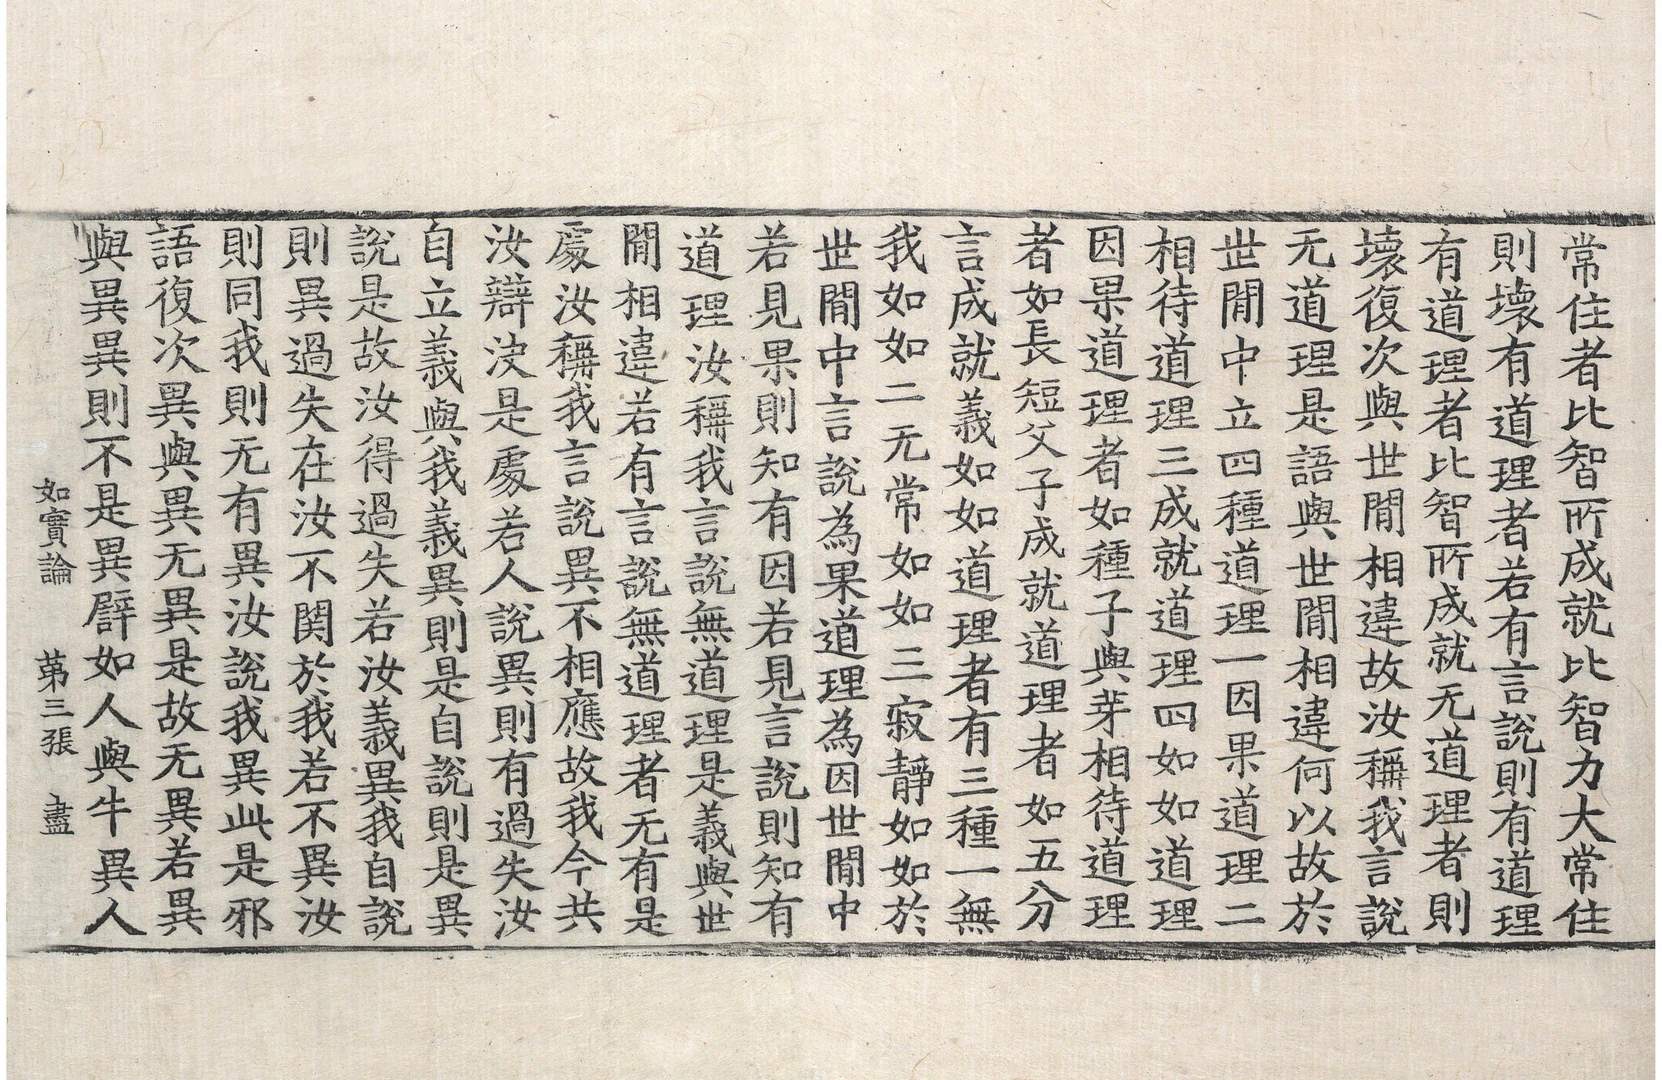 常住者比智所成就比智力大常住
則壞有道理者若有言說則有道理
有道理者比智所成就无道理者則
壞復次與世間相違故汝稱我言說
无道理是語與世間相違何以故於
世間中立四種道理一因果道理二
相待道理三成就道理四如如道理
因果道理者如種子與芽相待道理
者如長短父子成就道理者如五分
言成就義如如道理者有三種一無
我如如二无常如如三寂靜如如於
世間中言說為果道理為因世間中
若見果則知有因若見言說則知有
道理汝稱我言說無道理是義與世
間相違若有言說無道理者无有是
處汝稱我言說異不相應故我今共
汝辯決是處若人說異則有過失汝
自立義與我義異則是自說則是異
說是故汝得過失若汝義異我自說
則異過失在汝不関於我若不異汝
則同我則无有異汝說我異此是邪
語復次異與異无異是故无異若異
與異異則不是異譬如人與牛異人
如實論 第三張 盡